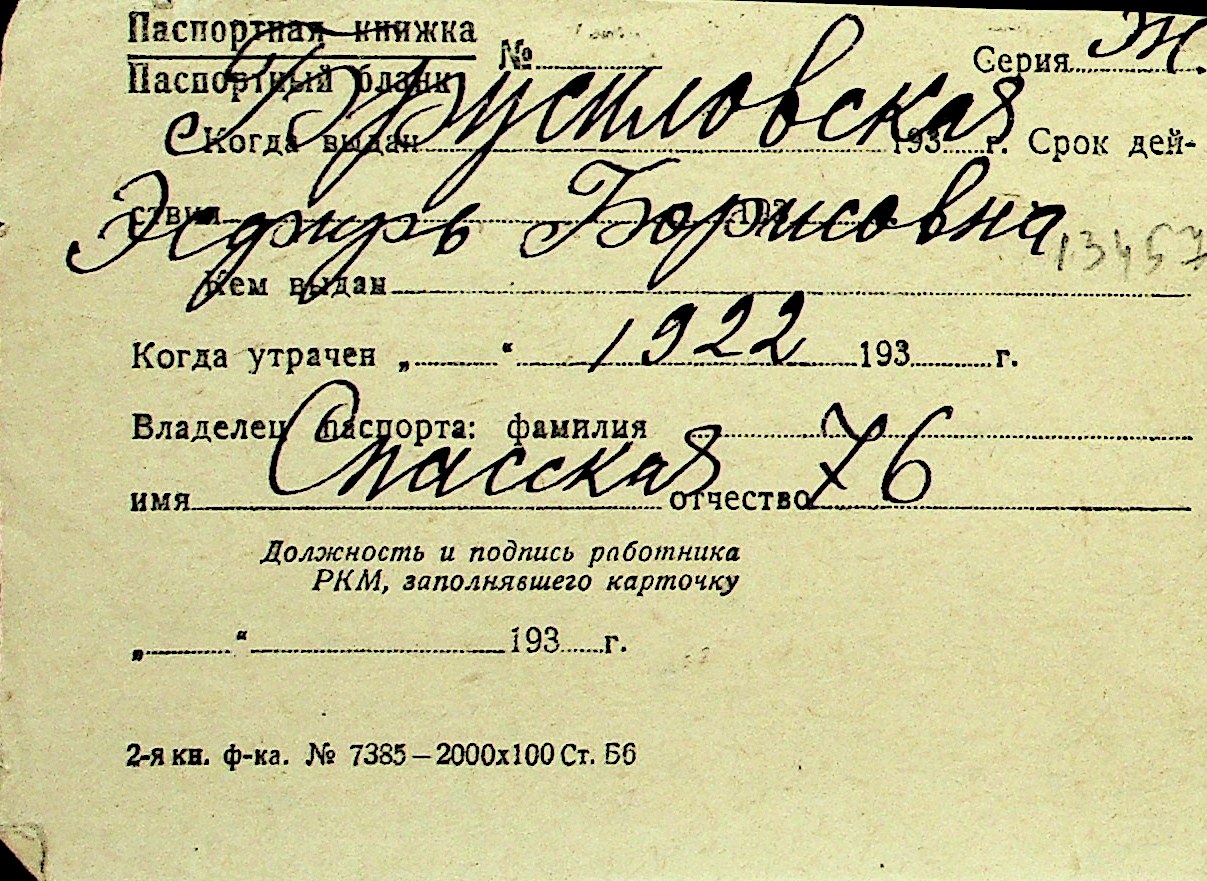 Паспортная книжка
Паспортный бланк № Серия Ж
Брусиловская
Когда выдан 193 г. Срок дей-
ствия 193
Эсфирь Борисовна
13457
Кем выдан
1922
Когда утрачен „ “ 193 г.
Владелец паспорта: фамилия
Спасская 76
имя отчество
Должность и подпись работника
РКМ, заполнявшего карточку
„ “ 193 г.
2-я кн. ф-ка. № 7385–2000х100 Ст. Бб